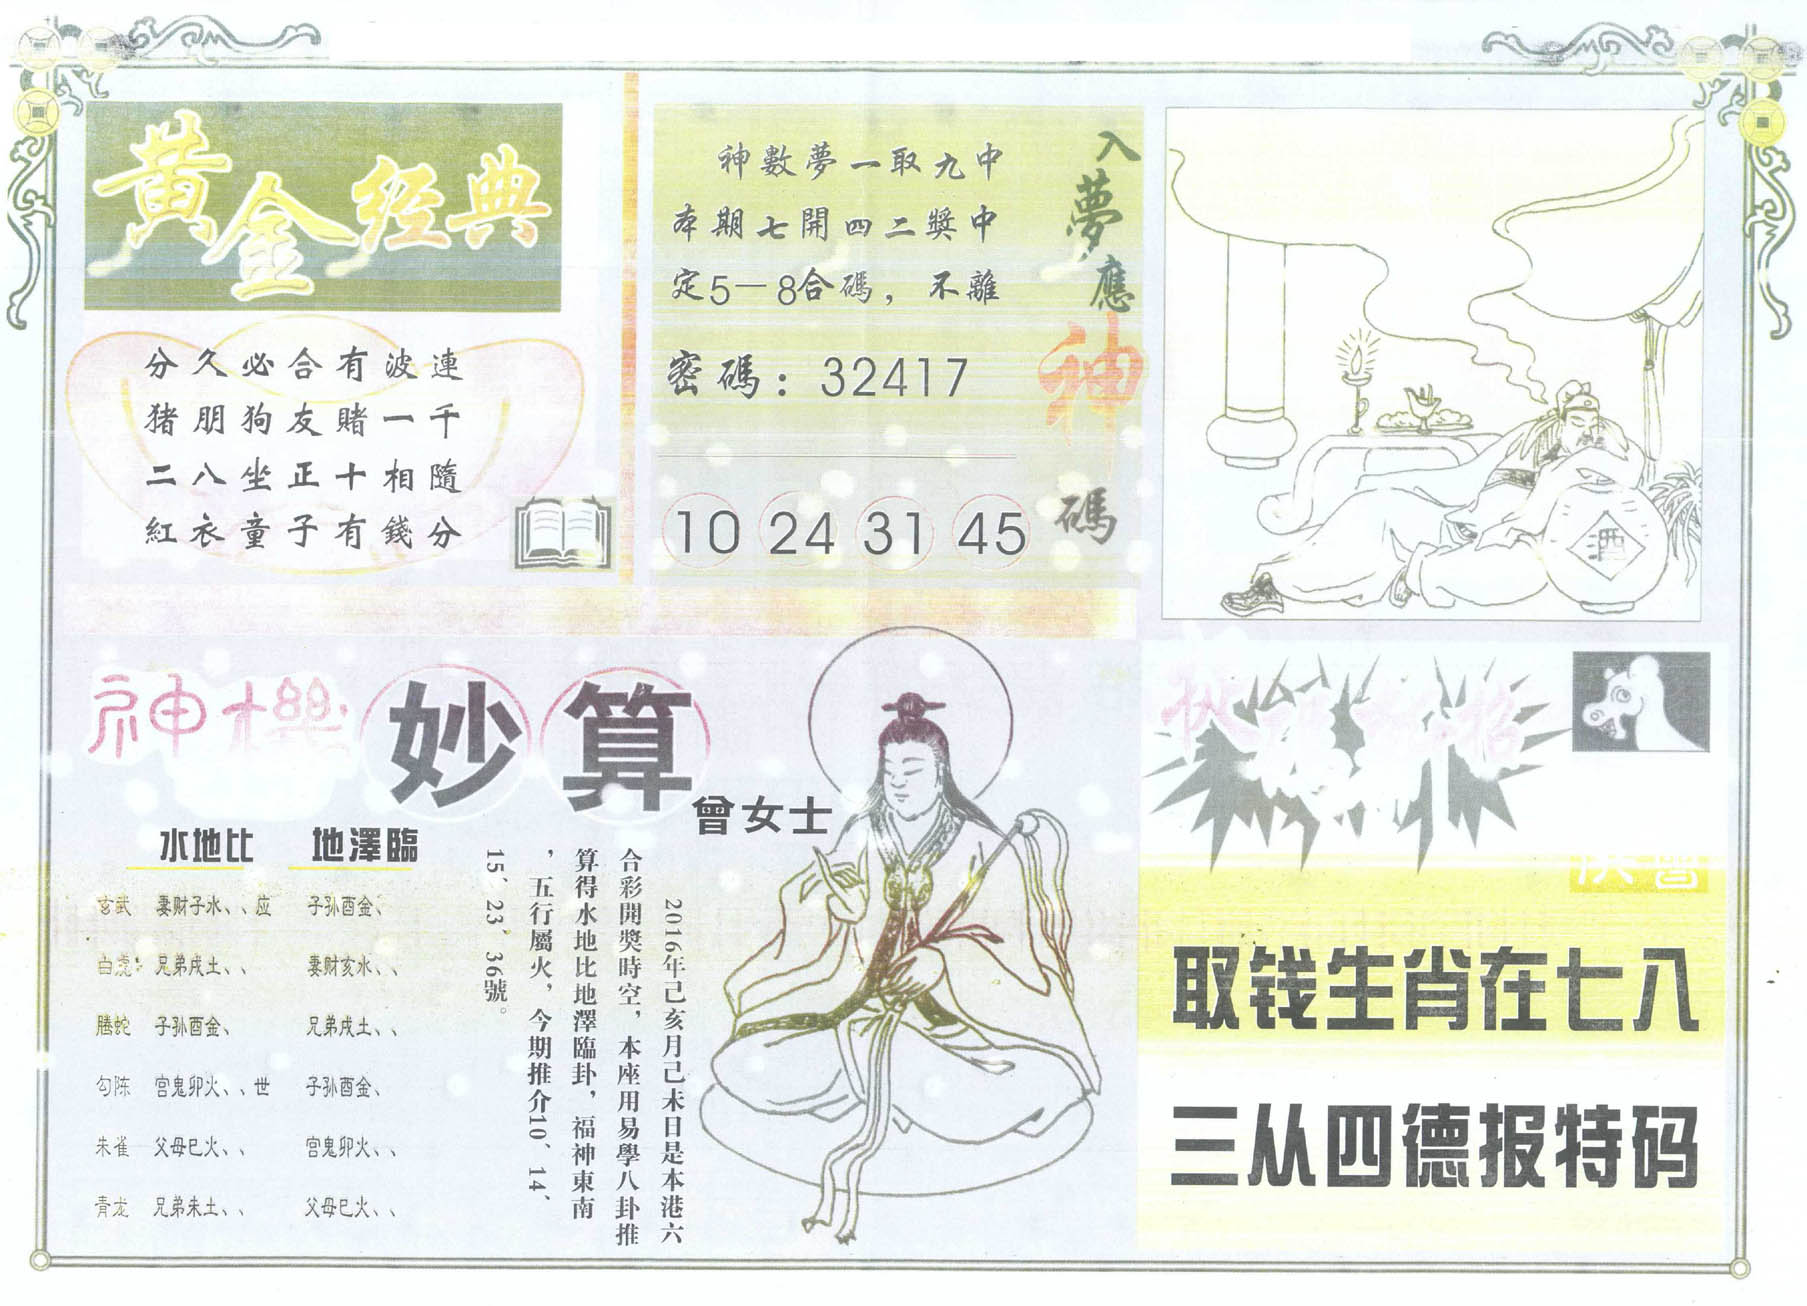 黃金经典
分久必合有波連
猪朋狗友賭一千
二八坐正十相隨
紅衣童子有錢分
神數夢一取九中
本期七開四二獎中
定5－8合碼，不離
密碼：32417
10 24 31 45
入夢應神碼
酒
神機妙算
曾女士
水地比 地澤臨
玄武 妻财子水、、应 子孙酉金、
白虎 兄弟戌土、、 妻财亥水、、
腾蛇 子孙酉金、 兄弟戌土、、
勾陈 宫鬼卯火、、世 子孙酉金、
朱雀 父母巳火、、 宫鬼卯火、、
青龙 兄弟未土、、 父母巳火、、
2016年己亥月己未日是本港六
合彩開獎時空，本座用易學八卦推
算得水地比地澤臨卦，福神東南
，五行屬火，今期推介10、14、
15、23、36號。
取钱生肖在七八
三从四德报特码